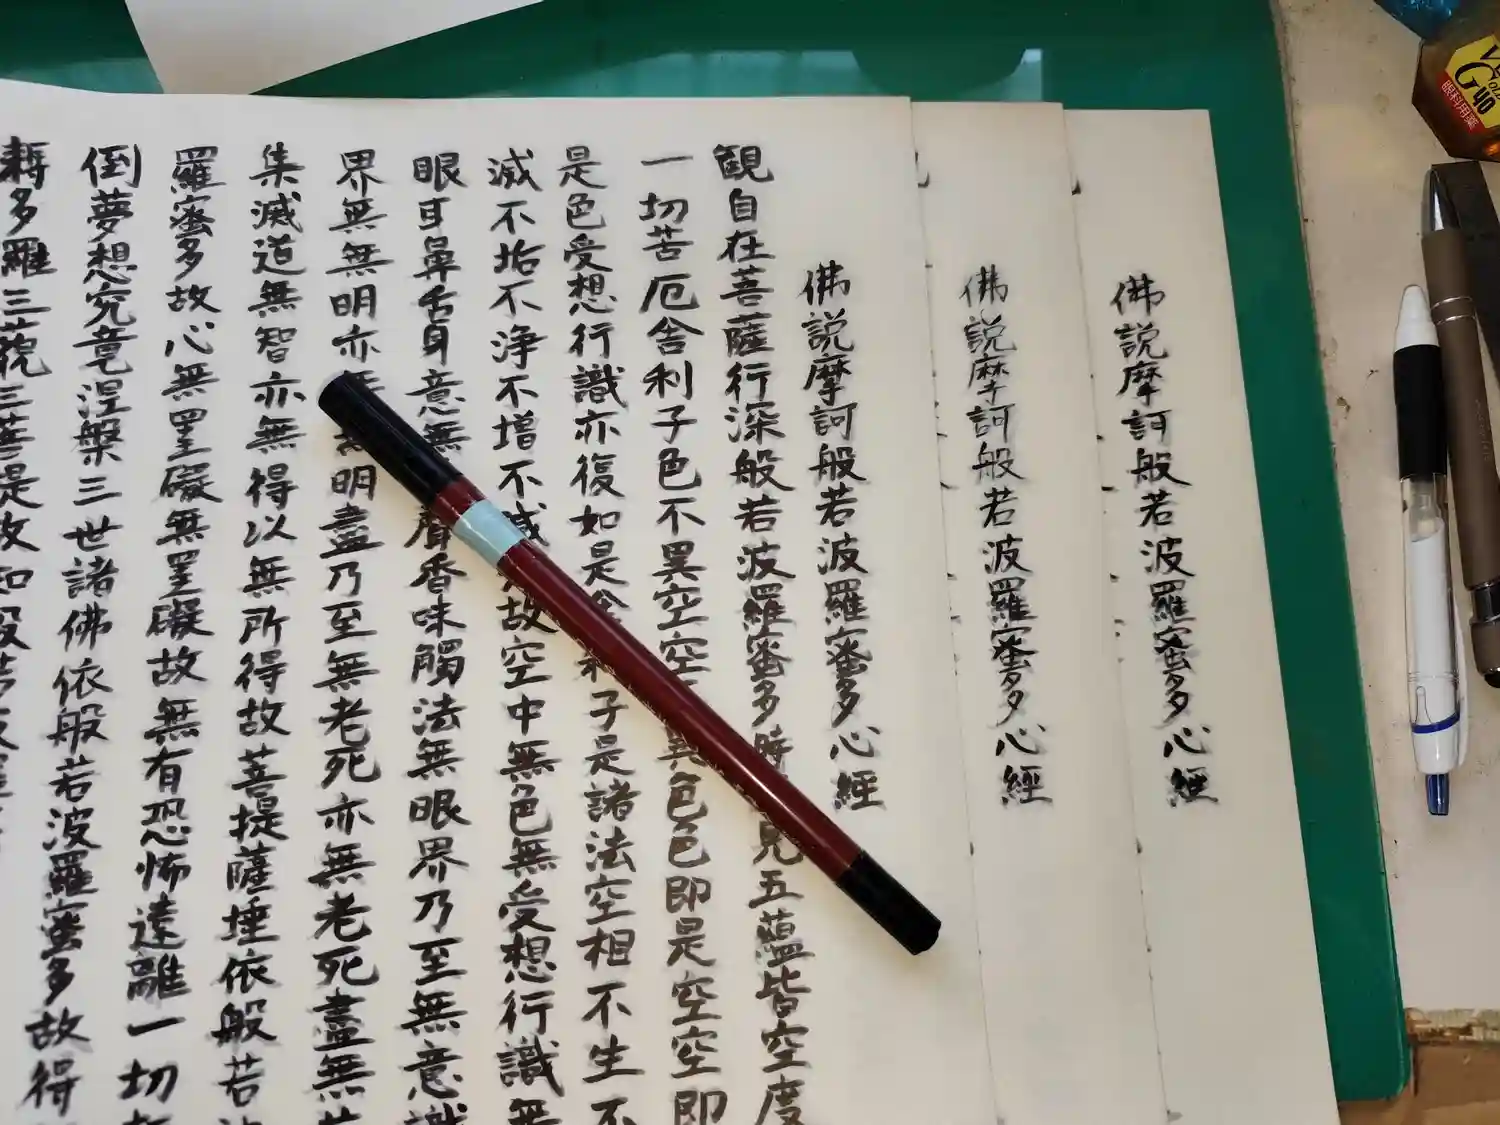 佛説摩訶般若波羅蜜多心經
佛説摩訶般若波羅蜜多心經
佛説摩訶般若波羅蜜多心經
観自在菩薩行深般若波羅蜜多時見五蘊皆空度
一切苦厄舎利子色不異空空異色色即是空空即
是色受想行識亦復如是舎利子是諸法空相不生不
滅不垢不浄不増不減故空中無色無受想行識無
眼耳鼻舌身意無聲香味觸法無眼界乃至無意識
界無無明亦無無明盡乃至無老死亦無老死盡無苦
集滅道無智亦無得以無所得故菩提薩埵依般若
羅蜜多故心無罣礙無罣礙故無有恐怖遠離一切
倒夢想究竟涅槃三世諸佛依般若波羅蜜多故得
耨多羅三藐三菩提故知般若
40
眼科用薬